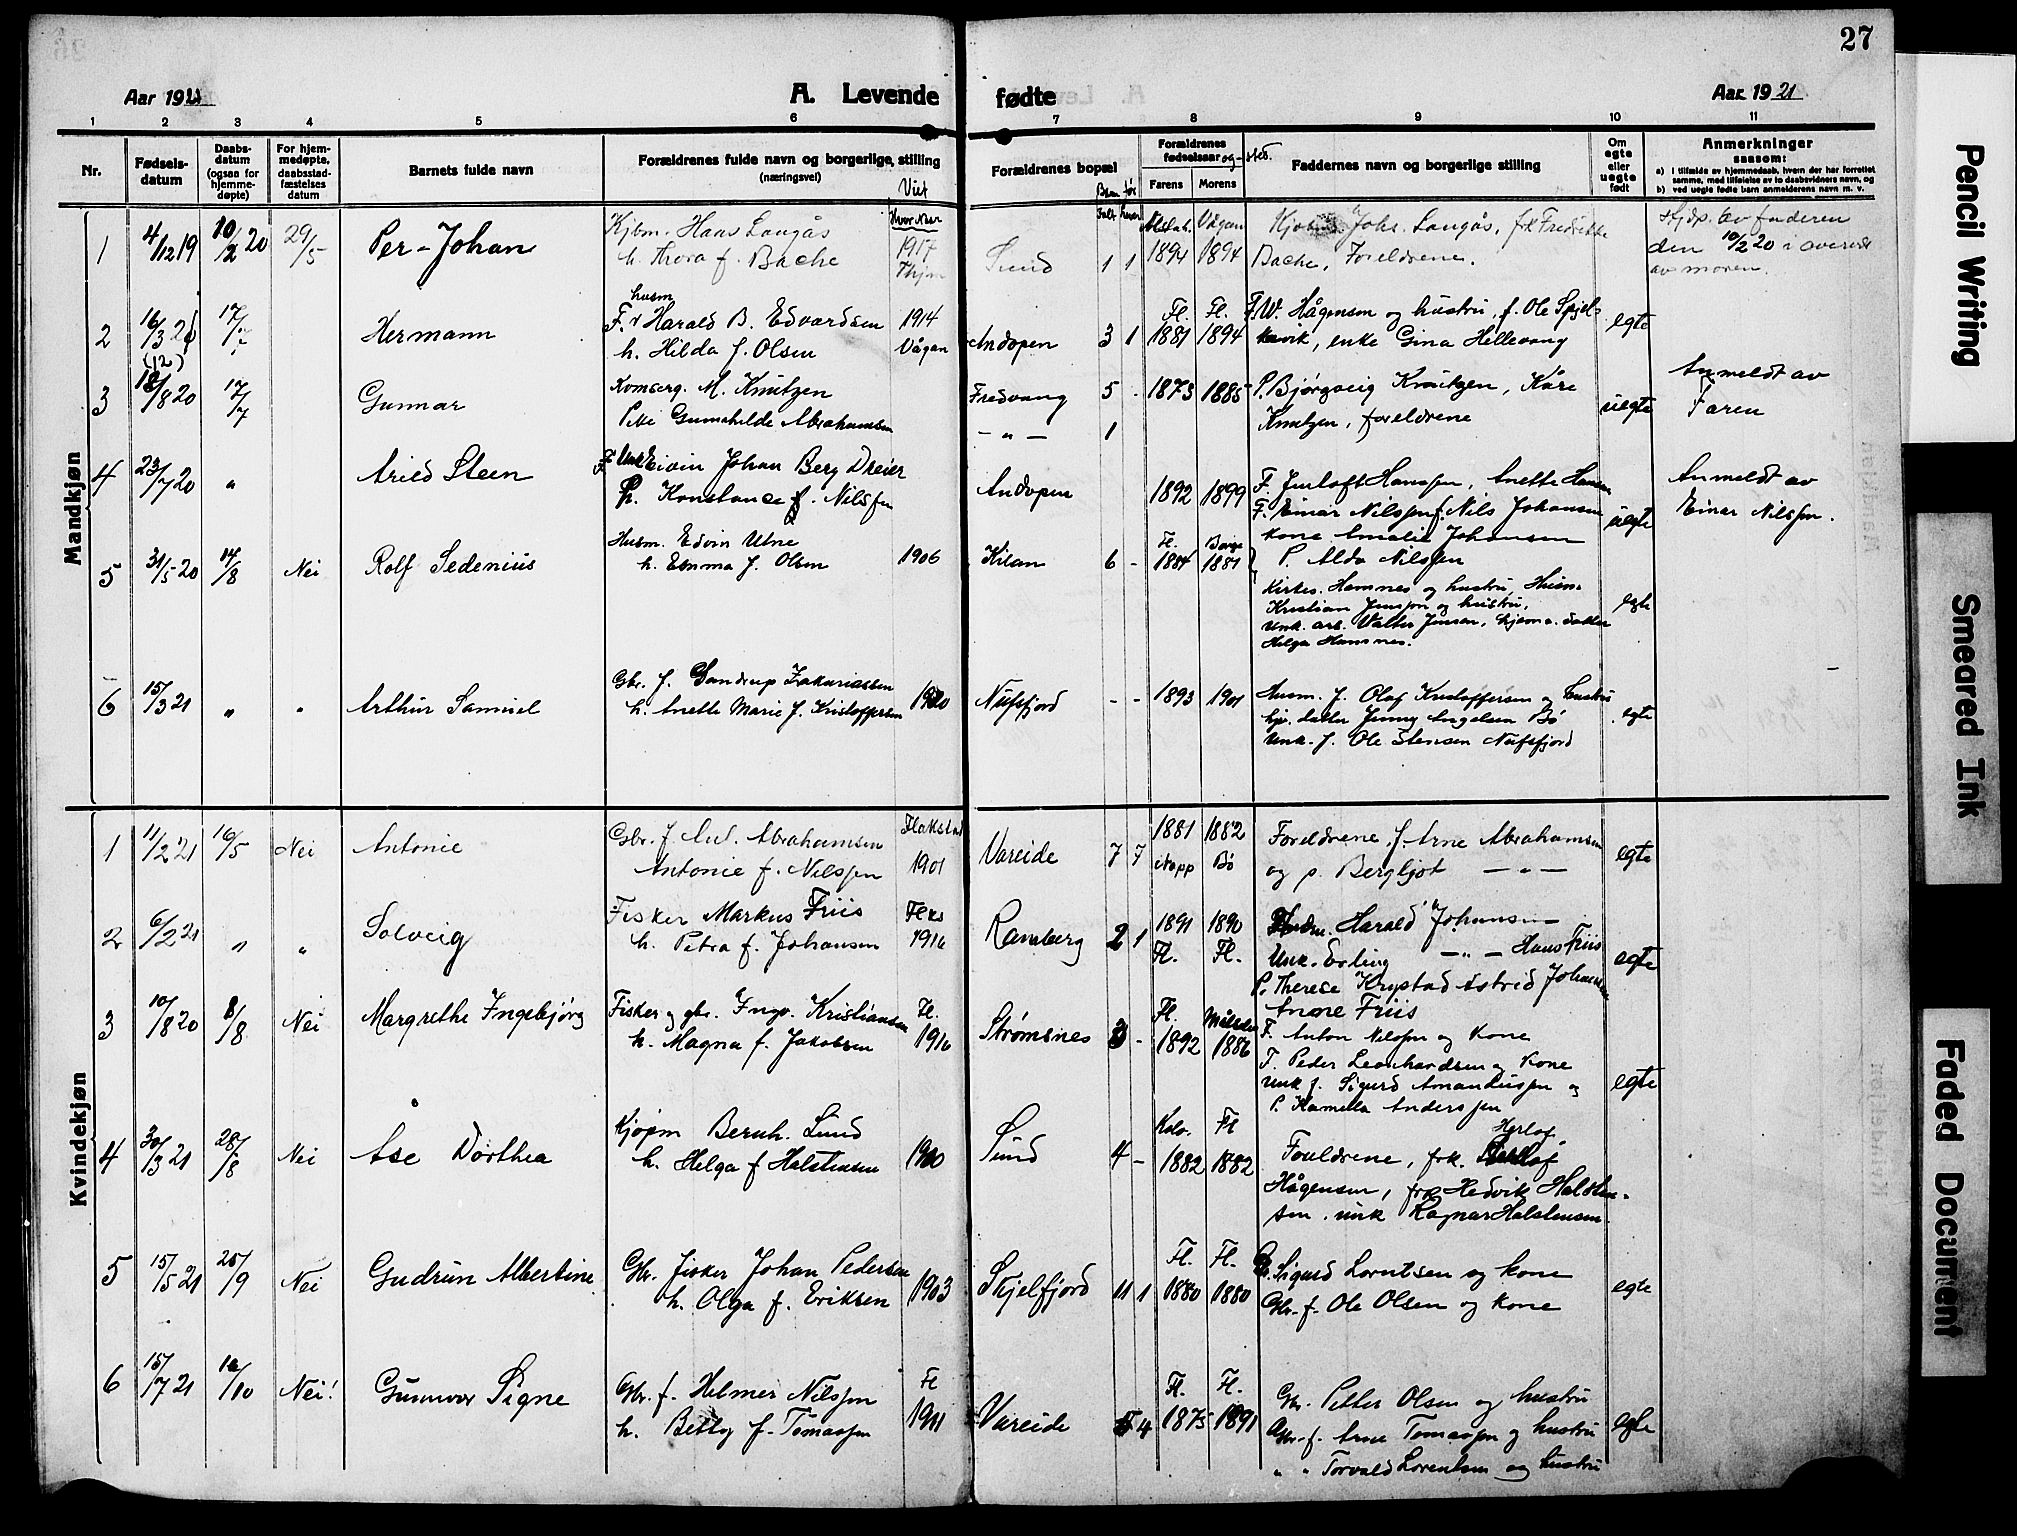 27
Aar 1921
A. Levende fødte
Aar 1921
1 2 3 4 5 6 7 8 9 10 11
Nr.
Fødsels-
datum
Daabs-
datum
(ogsaa for
hjemme-
døpte)
For hjem-
medøpte,
daabsstad-
fæstelses
datum
Barnets fulde navn
Forældrenes fulde navn og borgerlige stilling
(næringsvei)
Viet
Hvor Naar
Forældrenes bopæl
Forældrenes
fødselsaar og -sted.
Farens Morens
Faddernes navn og borgerlige stilling
Om
egte
eller
uegte
født
Anmerkninger
saasom:
a) i tilfælde av hjemmedaab, hvem der har forrettet
samme, med tilføielse av to daabsvidners navn, og
b) ved uegte fødte barn anmelderens navn m. v.
Mandkjøn
1 4/12 19 10/2 20 29/5 Per-Johan
Kjbm. Hans Langås
h. Thora f. Bache
1917
Sund 1 1
1894 1894
Kjøbm. Johs. Langås, frk Fredrikke
Bache, Foreldrene.
Hjdp. av faderen
den 10/2 20 i overvær
av moren.
2 16/3 20 17/7 Hermann
husm
F. v Harald B. Edvardsen
h. Hilda f. Olsen
1914
Vågan
Andopen 3 1
Fl. Fl.
1881 1894
F.W. Hågensen og hustru, f. Ole Skjel-
kvik, enke Gina Hellevang
egte
(12)
3 18/8 20 17/7 Gunnar
M. Knutzen
Pike Gunnhilde Abrahamsen
Fredvang 5 -
- " - 1
1873 1885
P. Bjørgveig Knutzen, Kåre
Knutzen, foreldrene
uegte
Anmeldt av
Faren
4 23/7 20 " Arild Steen
F. Unk Eivin Johan Berg Dreier
P. Konstance f. Nilssen
Andopen
1892 1899
F. Jentoft Hanssen, Anette Hansen
F. Einar Nilssen f. Nils Johansen
kone Amalie Johansen
P. Alda Nilssen
uegte
Anmeldt av
Einar Nilssen.
5 31/5 20 14/8 Nei Rolf Sedenius
Husm. Edvin Utne
h. Emma f. Olsen
1906
Kilan 6 -
Fl. Borge
1884 1881
Kirkes. Hamnes og hustru, Husm.
Kristian Jensen og hustru,
unk. arb. Valter Jensen, hjemv. datter
Helga Hamnes.
egte
6 15/3 21 " " Arthur Samuel
Gbr. f. Sandrup Zakariassen
h. Anette Marie f. Kristoffersen
1920
Nufsfjord - -
1893 1901
Husm. f. Olaf Kristoffersen og hustru
hjv. datter Jenny Angelsen Bø
Unk. f. Ole Stensen Nufsfjord
egte
Kvindekjøn
1 11/2 21 16/5 Nei Antonie
Gbr. f. And. Abrahamsen
Antonie f. Nilssen
Flakstad
1901
Vareide 7 7
1881 1882
Napp Bø
Foreldrene, f. Arne Abrahamsen
og p. Bergljot - " -
egte
2 6/2 21 " " Solveig
Fisker Markus Friis
h. Petra f. Johansen
Flks
1916
Ramberg 2 1
1891 1890
Fl. Fl.
Husm. Harald Johansen
Unk. Erling - " - Hans Friis
P. Therese Krystad Astrid Johansen
Anne Friis
egte
3 10/8 20 8/8 Nei Margrethe Ingebjørg
Fisker og gbr. Ingv. Kristiansen
h. Magna f. Jakobsen
Fl.
1916
Strømsnes 3 -
Fl. Målselv
1892 1886
F. Anton Nilssen og Kone
F. Peder Leonhardsen og Kone
unk f. Sigurd Amandussen og
P. Kamilla Anderssen
egte
4 30/3 21 28/8 Nei Åse Dorthea
Kjøpm Bernh. Sund
h. Helga f Halstensen
1910
Sund 4 -
Fl
1882 1882
Herlof
Foreldrene, frk.
Hågensen, frk Hedvik Halsten-
sen. unk Ragnar Halstensen.
5 15/5 21 25/9 Nei Gudrun Albertine
Gbr. fisker Johan Pedersen
h. Olga f. Eriksen
1903
Skjelfjord 11 1
Fl. Fl.
1880 1880
G. Sigurd Lorntsen og kone
Gbr. f. Ole Olsen og kone
egte
6 15/7 21 16/10 Nei! Gunnvor Signe
Gbr. f. Helmer Nilssen
h. Betty f. Tomassen
Fl
1911
Vareide 5 4
Fl. Fl.
1875 1891
Gbr. Petter Olsen og hustru
Gbr. f. Arne Tomassen og hustru
" " Torvald Lorentsen og hustru
egte
Pencil Writing
Smeared Ink
Faded Document